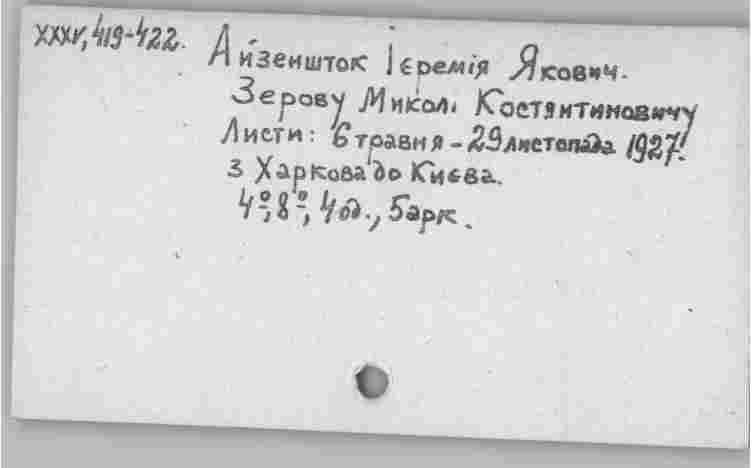 XXXV, 419-422.
Айзеншток Ієремія Якович.
Зерову Миколі Костянтиновичу
Листи: 6 травня - 29 листопада 1927.
з Харкова до Києва.
4°, 8°, 4 од., 5 арк.